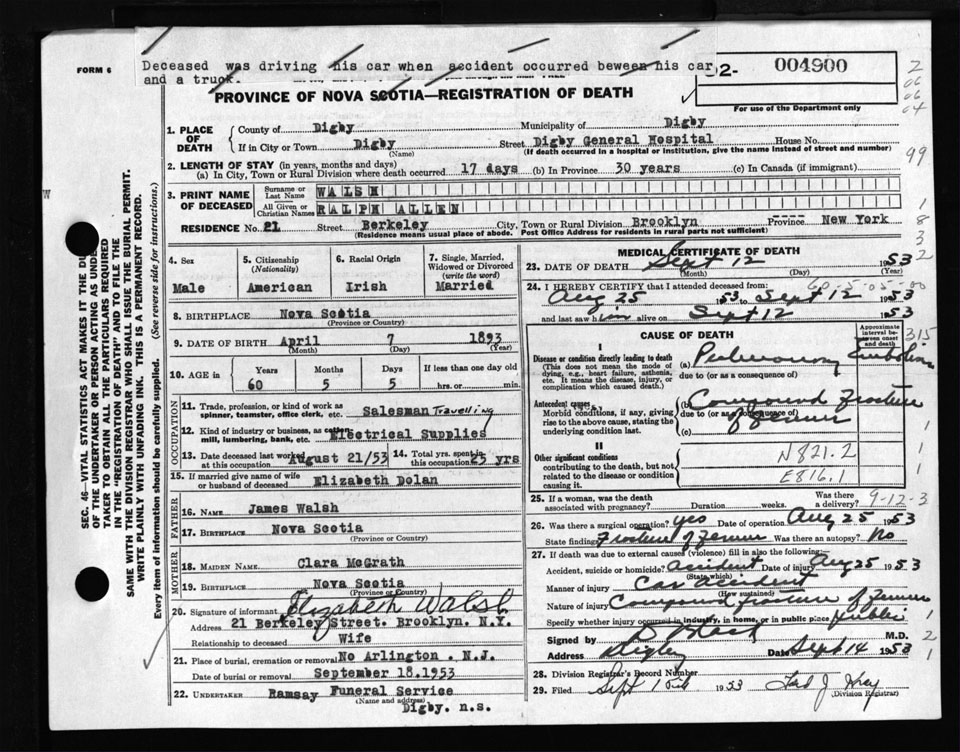 FORM 6
Deceased was driving his car when accident occurred beween his car
and a truck.
2- 004900
For use of the Department only
PROVINCE OF NOVA SCOTIA—REGISTRATION OF DEATH
1. PLACE OF DEATH
County of Digby Municipality of Digby
If in City or Town Digby Street Digby General Hospital House No.
(Name) (If death occurred in a hospital or institution, give the name instead of street and number)
2. LENGTH OF STAY (in years, months and days)
(a) In City, Town or Rural Division where death occurred 17 days (b) In Province 30 years (c) In Canada (if immigrant)
3. PRINT NAME OF DECEASED
Surname or Last Name WALSH
All Given or Christian Names RALPH ALLEN
RESIDENCE No. 21 Street Berkeley City, Town or Rural Division Brooklyn Province New York
(Residence means usual place of abode. Post Office Address for residents in rural parts not sufficient)
4. Sex Male
5. Citizenship (Nationality) American
6. Racial Origin Irish
7. Single, Married, Widowed or Divorced (write the word) Married
8. BIRTHPLACE Nova Scotia
(Province or Country)
9. DATE OF BIRTH April 7 1893
(Month) (Day) (Year)
10. AGE in Years Months Days If less than one day old
60 5 5 hrs. or min.
OCCUPATION
11. Trade, profession, or kind of work as spinner, teamster, office clerk, etc. Salesman Travelling
12. Kind of industry or business, as cotton mill, lumbering, bank, etc. Electrical Supplies
13. Date deceased last worked at this occupation August 21/53
14. Total yrs. spent in this occupation 25 yrs
15. If married give name of wife or husband of deceased Elizabeth Dolan
FATHER
16. NAME James Walsh
17. BIRTHPLACE Nova Scotia
(Province or Country)
MOTHER
18. MAIDEN NAME Clara McGrath
19. BIRTHPLACE Nova Scotia
(Province or Country)
20. Signature of informant Elizabeth Walsh
Address 21 Berkeley Street. Brooklyn. N.Y.
Relationship to deceased Wife
21. Place of burial, cremation or removal No Arlington . N.J.
Date of burial or removal September 18.1953
22. UNDERTAKER Ramsay Funeral Service
(Name and address)
Digby. n.s.
MEDICAL CERTIFICATE OF DEATH
23. DATE OF DEATH Sept 12 1953
(Month) (Day) (Year)
24. I HEREBY CERTIFY that I attended deceased from:
Aug 25 1953 to Sept 12 1953
and last saw him alive on Sept 12 1953
CAUSE OF DEATH
Approximate interval between onset and death
I
Disease or condition directly leading to death
(This does not mean the mode of dying, e.g., heart failure, asthenia, etc. It means the disease, injury, or complication which caused death.)
(a) Pulmonary Embolism
due to (or as a consequence of)
Antecedent causes
Morbid conditions, if any, giving rise to the above cause, stating the underlying condition last.
(b) Compound fracture
due to (or as a consequence of)
of femur
(c)
II
Other significant conditions
contributing to the death, but not related to the disease or condition causing it.
N821.2
E816.1
25. If a woman, was the death associated with pregnancy? Duration weeks. Was there a delivery?
9-12-3
26. Was there a surgical operation? yes Date of operation Aug 25 1953
State findings Fracture of femur Was there an autopsy? No
27. If death was due to external causes (violence) fill in also the following:
Accident, suicide or homicide? Accident Date of injury Aug 25 1953
(State which)
Manner of injury Car accident
(How sustained)
Nature of injury Compound fracture of femur
Specify whether injury occurred in industry, in home, or in public place public
Signed by M.D.
Address Digby Date Sept 14 1953
28. Division Registrar's Record Number
29. Filed Sept 1953
(Division Registrar)
SEC. 46—VITAL STATISTICS ACT MAKES IT THE DU
OF THE UNDERTAKER OR PERSON ACTING AS UNDER
TAKER TO OBTAIN ALL THE PARTICULARS REQUIRED
IN THE "REGISTRATION OF DEATH" AND TO FILE THE
SAME WITH THE DIVISION REGISTRAR WHO SHALL ISSUE THE BURIAL PERMIT.
WRITE PLAINLY WITH UNFADING INK. THIS IS A PERMANENT RECORD.
Every item of information should be carefully supplied. (See reverse side for instructions.)
99
315